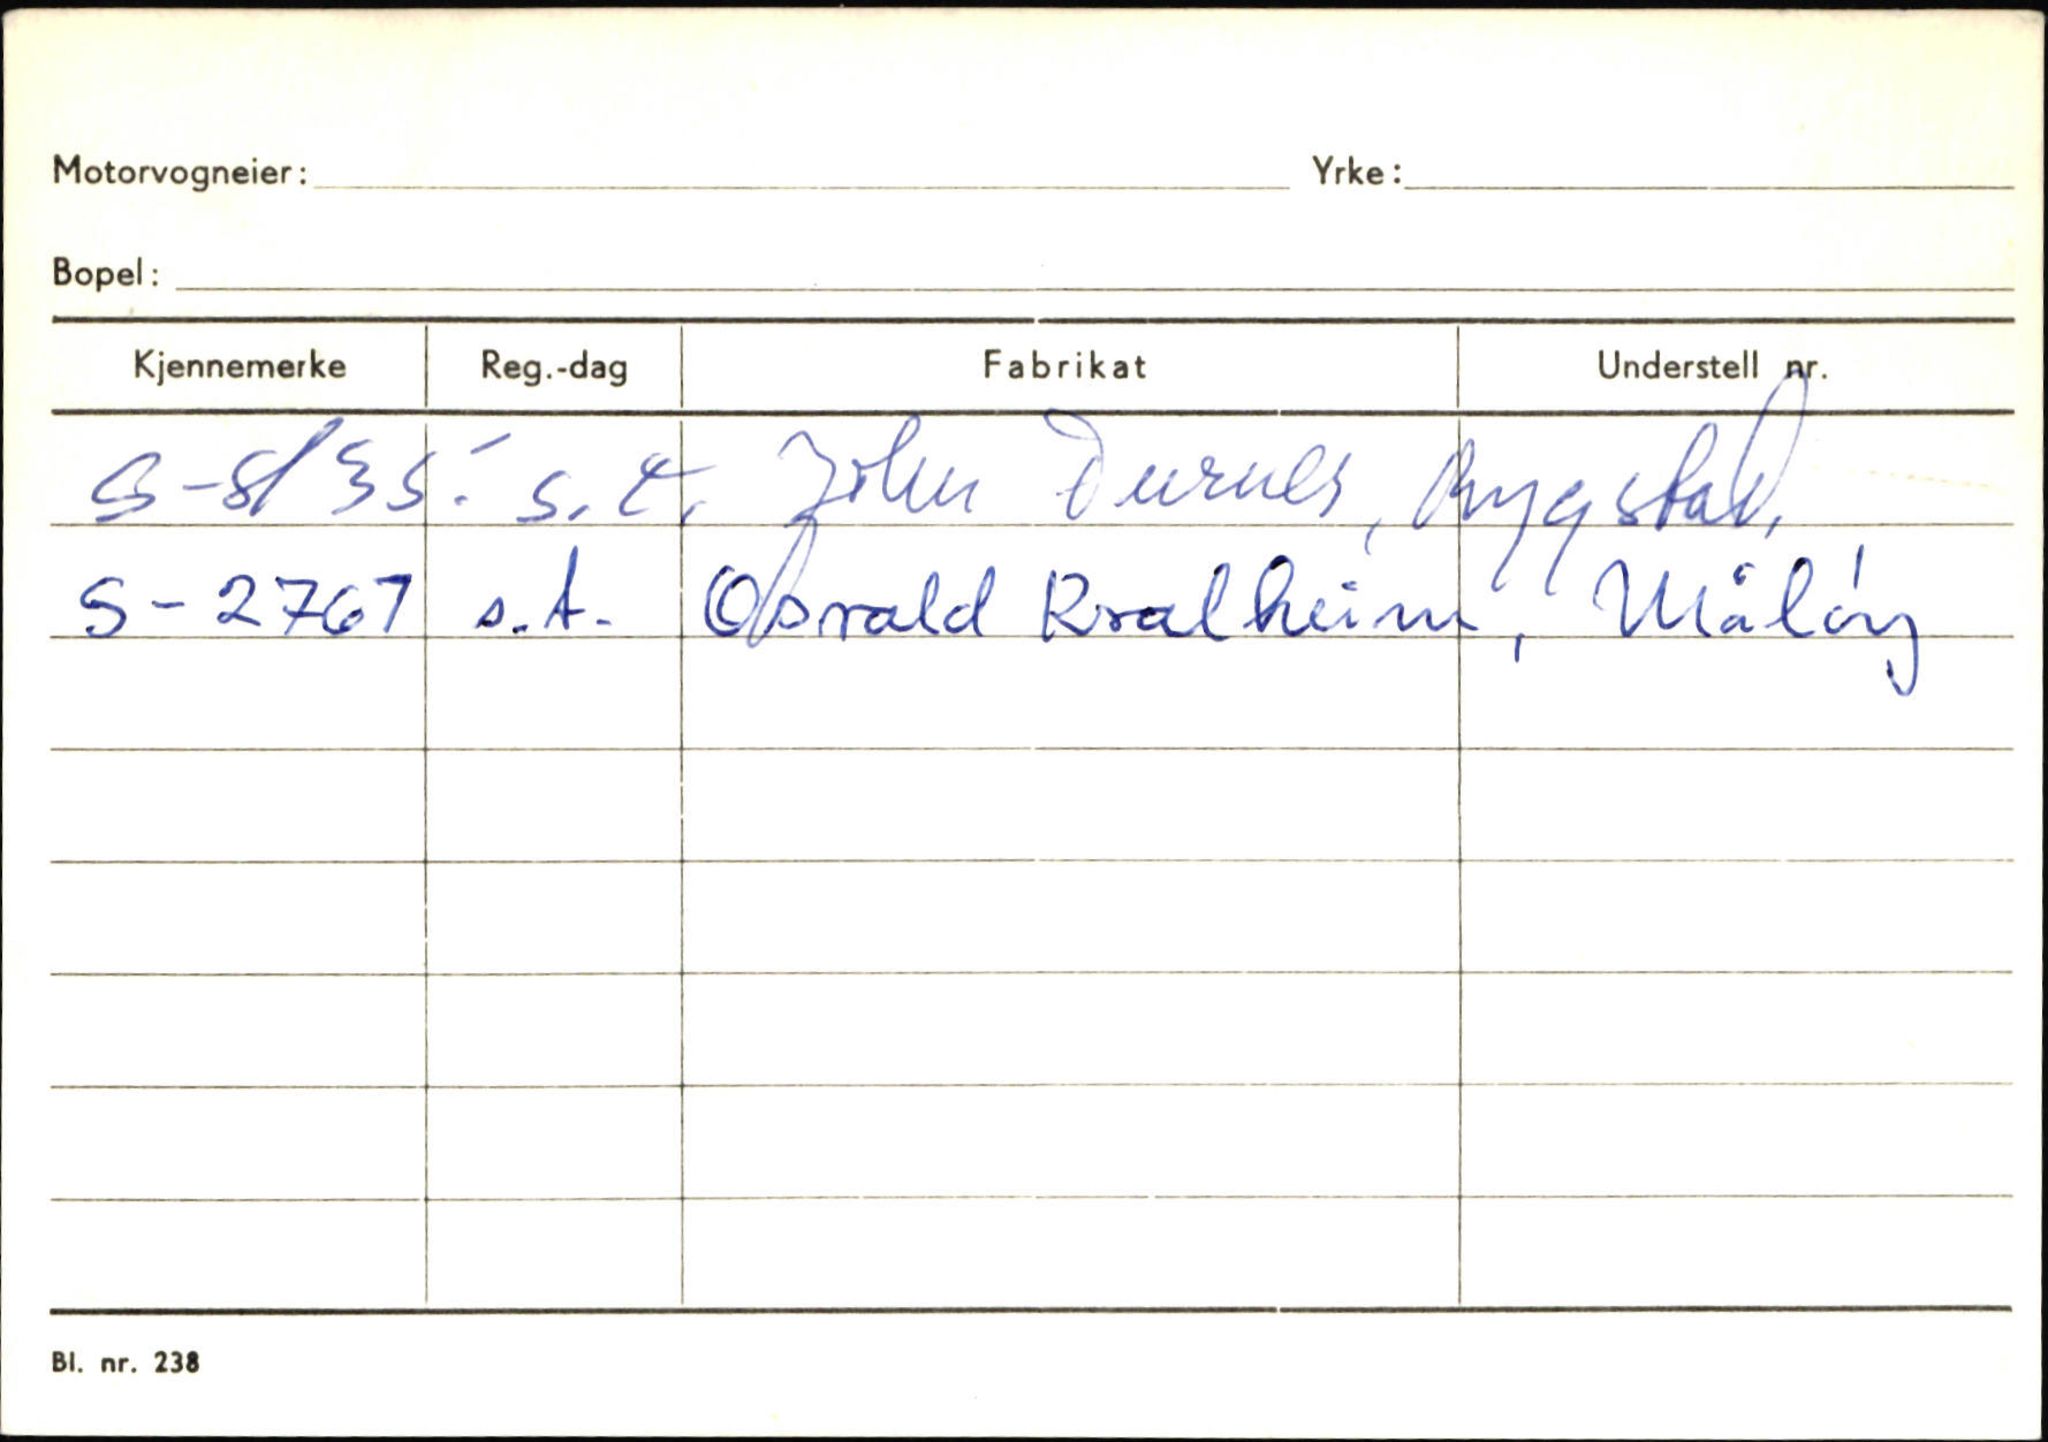 Motorvogneier: Yrke:
Bopel:
Kjennemerke Reg.-dag Fabrikat Understell nr.
S-8135 s.t. John Durnes, Bryggstad,
S-2767 s.t. Osvald Kvalheim, Måløy
Bl. nr. 238